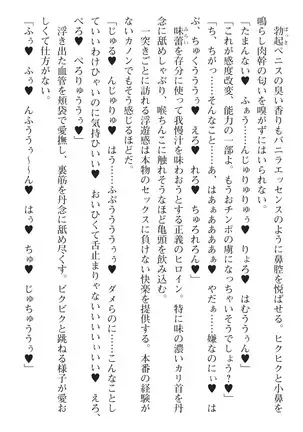 勃起ペニスの臭い香りもバニラエッセンスのように鼻腔を伝い、ヒクヒクと小鼻を
鳴らし肉幹の匂いを嗅がずにはいられない。
「たまんない♥　ふぁぅ……んじゅりゅりゅぅ♥　りょろ♥　はむううぅん♥」
「これが感度改変、能力の一部よ。もうおチンポの虜になっちゃいそうでしょう？」
「ち、ちがっ……そんなこと……あ、はぁぁぁぁぁぁ♥　やだぁ……嫌なのにぃ♥　は
お、ちゅくううううぅ♥　えろ♥　れる♥　ちゅろれろん♥」
味蕾を存分に使って我慢汁を味わおうとする正義のヒロイン。特に味の濃いカリ首を丹
念に舐めしゃぶり、喉ちんこに触れそうなほど亀頭を飲み込む。
一突きごとに訪れる浮遊感は本物のセックスに負けない快楽を提供する。本番の経験が
ないカノンでもそう感じるほどだ。
「じゅる♥　んじゅりゅ♥　はう……ふぷうううううぅ♥　ダメらのに……こんなことし
ていいわけひゃいのに気持ひいいぃ♥　おいひくて舌止まりゃないいいいぃ♥　えろ、
ぺろ♥　ぺろりゅううぅ♥」
浮き出た血管を頬袋で愛撫し、裏筋を丹念に舐め尽くす。ビクビクと跳ねる様子が愛お
しくて仕方がない。
「ふぅ♥　ふぅ♥　んふううぅ～～～ん♥　はぅ♥　ちゅ♥　じゅちゅううぅ♥」